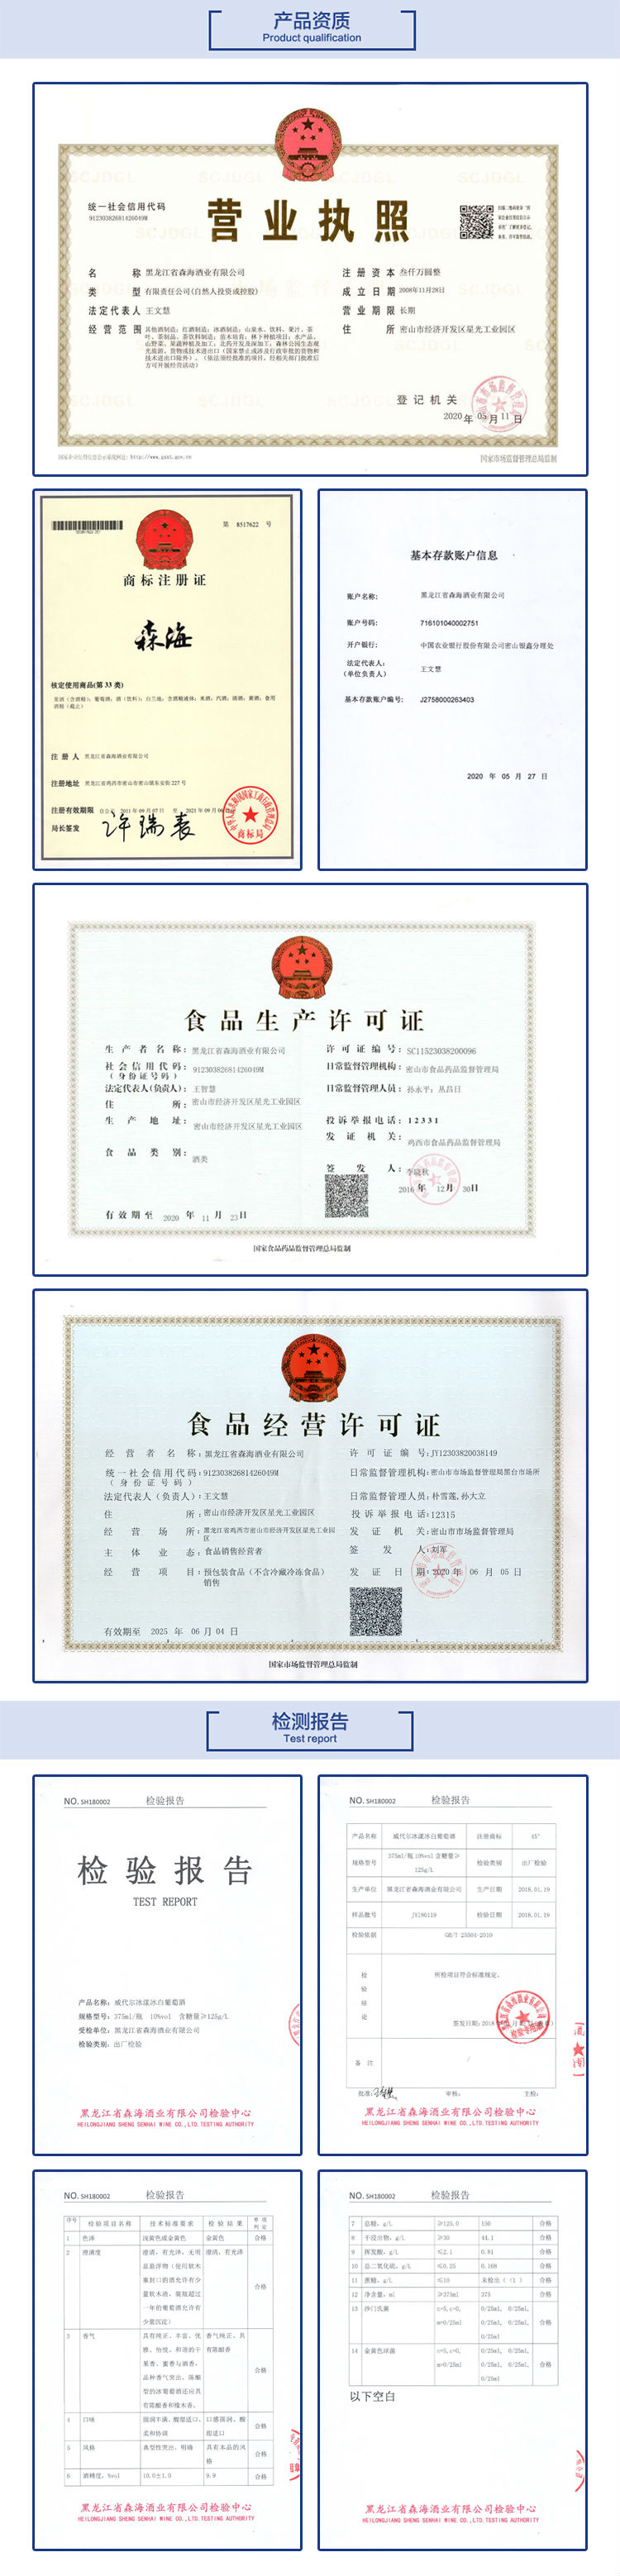 产品资质
Product qualification
统一社会信用代码
91230382681426049M
营业执照
名 称 黑龙江省森海酒业有限公司
类 型 有限责任公司(自然人投资或控股)
法定代表人 王文慧
经营范围
注册资本 叁仟万圆整
成立日期 2008年11月28日
营业期限 长期
住 所 密山市经济开发区星光工业园区
登记机关
2020 年 05 月 11 日
国家市场监督管理总局监制
第 8517622 号
商标注册证
森海
核定使用商品(第 33 类)
注 册 人 黑龙江省森海酒业有限公司
注册地址 黑龙江省鸡西市密山市密山镇东安街 227 号
注册有效期限
局长签发
基本存款账户信息
账户名称: 黑龙江省森海酒业有限公司
账户号码: 716101040002751
开户银行: 中国农业银行股份有限公司密山银鑫分理处
法定代表人:
(单位负责人) 王文慧
基本存款账户编号: J2758000263403
2020 年 05 月 27 日
食品生产许可证
生产者名称: 黑龙江省森海酒业有限公司
社会信用代码:
(身份证号码) 91230382681426049M
法定代表人(负责人): 王智慧
住 所: 密山市经济开发区星光工业园区
生产地址: 密山市经济开发区星光工业园区
食品类别: 酒类
有效期至 2020 年 11 月 23日
许可证编号: SC11523038200096
日常监督管理机构: 密山市食品药品监督管理局
日常监督管理人员: 孙永平; 丛昌日
投诉举报电话: 12331
发证机关: 鸡西市食品药品监督管理局
签发人: 李晓秋
2016 年 12月 30日
国家食品药品监督管理总局监制
食品经营许可证
经营者名称: 黑龙江省森海酒业有限公司
统一社会信用代码: 91230382681426049M
(身份证号码)
法定代表人(负责人): 王文慧
住 所: 密山市经济开发区星光工业园区
经营场所: 黑龙江省鸡西市密山市经济开发区星光工业园区
主体业态: 食品销售经营者
经营项目: 预包装食品(不含冷藏冷冻食品)
销售
有效期至 2025 年 06 月 04 日
许可证编号: JY12303820038149
日常监督管理机构: 密山市市场监督管理局黑台市场所
日常监督管理人员: 朴雪莲,孙大立
投诉举报电话: 12315
发证机关: 密山市市场监督管理局
签发人: 刘军
发证日期: 2020 年 06 月 05 日
国家市场监督管理总局监制
检测报告
Test report
NO. SH180002 检验报告
检验报告
TEST REPORT
产品名称: 威代尔冰漾冰白葡萄酒
规格型号: 375ml/瓶 10%vol 含糖量≥125g/L
受检单位: 黑龙江省森海酒业有限公司
检验类别: 出厂检验
黑龙江省森海酒业有限公司检验中心
HEILONGJIANG SHENG SENHAI WINE CO.,LTD.TESTING AUTHORITY
NO. SH180002 检验报告
产品名称 威代尔冰漾冰白葡萄酒 注册商标 45°
规格型号 375ml/瓶 10%vol 含糖量≥125g/L 检验类别 出厂检验
生产单位 黑龙江省森海酒业有限公司 生产日期 2018.01.19
样品批号 检验日期
检验依据 GB/T 25504-2010
检验结论 所检项目符合标准规定。
备 注 /
批准: 审核: 主检:
黑龙江省森海酒业有限公司检验中心
HEILONGJIANG SHENG SENHAI WINE CO.,LTD.TESTING AUTHORITY
NO. SH180002 检验报告
序号 检验项目名称 技术标准要求 检验结果 单项判定
1 色泽 浅黄色或金黄色 金黄色 合格
2 澄清度 澄清、有光泽,无明显悬浮物(使用软木塞封口的酒允许有少量软木渣,装瓶超过一年的葡萄酒允许有少量沉淀) 澄清、有光泽 合格
3 香气 合格
4 口味 合格
5 风格 典型性突出、明确 具有本品的风格 合格
6 酒精度,%vol 10.0±1.0 9.9 合格
黑龙江省森海酒业有限公司检验中心
HEILONGJIANG SHENG SENHAI WINE CO.,LTD.TESTING AUTHORITY
NO. SH180002 检验报告
7 总糖,g/L ≥125.0 150 合格
8 干浸出物,g/L ≥30 44.1 合格
9 挥发酸,g/L ≤2.1 0.91 合格
10 总二氧化硫,g/L ≤0.25 0.168 合格
11 蔗糖,g/L ≤10 未检出(<1) 合格
12 净含量,ml ≥375ml 375 合格
13 沙门氏菌 c=5,c=0, m=0/25ml 0/25ml, 0/25ml, 0/25ml, 0/25ml, 0/25ml 合格
14 金黄色球菌 c=5,c=0, m=0/25ml 0/25ml, 0/25ml, 0/25ml, 0/25ml, 0/25ml 合格
以下空白
黑龙江省森海酒业有限公司检验中心
HEILONGJIANG SHENG SENHAI WINE CO.,LTD.TESTING AUTHORITY